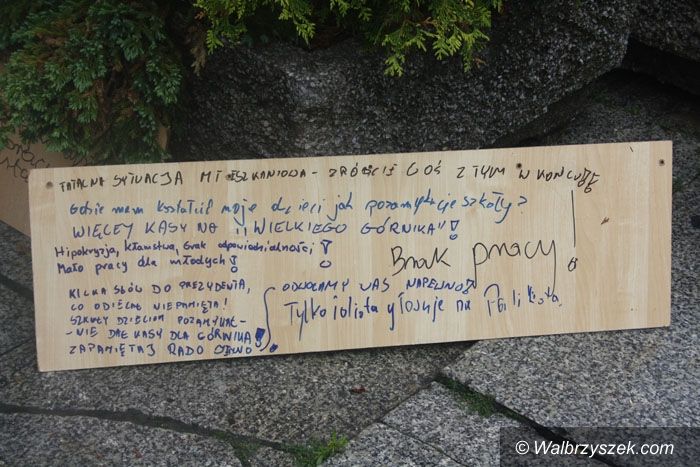 TATALNA SYTUACJA MIESZKANIOWA - ZRÓBCIE COŚ Z TYM W KOŃCU!!
Gdzie mam kształcić moje dzieci jak pozamykacie szkoły?
WIĘCEJ KASY NA "WIELKIEGO GÓRNIKA"!
Hipokryzja, kłamstwa, brak odpowiedzialności!
Mało pracy dla młodych!
Brak pracy!
KILKA SŁÓW DO PREZYDENTA,
CO ODIECAŁ NIEPAMIĘTA!
SZKOŁY DZIECIOM POZAMYKAĆ -
- NIE DAĆ KASY DLA GÓRNIKA!
ZAPAMIĘTAJ RADO
ODWOŁAMY WAS NAPEWNO!
Tylko idiota głosuje na
© Walbrzyszek.com